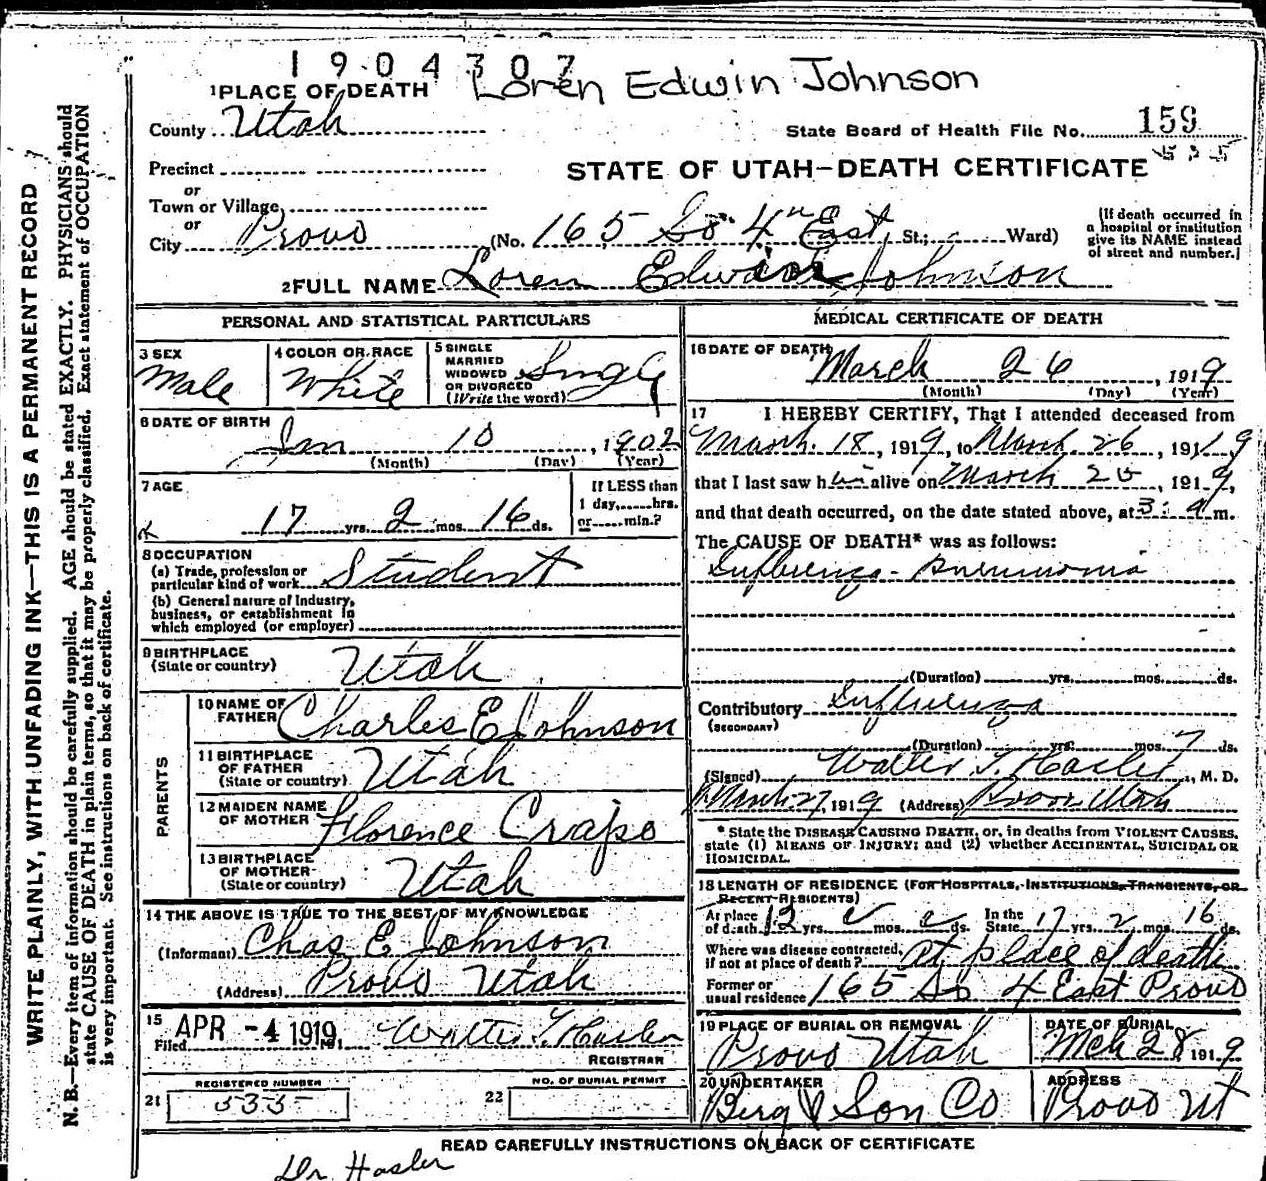 1904307
Loren Edwin Johnson
1 PLACE OF DEATH
County Utah
State Board of Health File No. 159
Precinct
STATE OF UTAH—DEATH CERTIFICATE
or
Town or Village
or
City Provo (No. 165 So. 4th East St.; Ward)
(If death occurred in
a hospital or institution
give its NAME instead
of street and number.)
2 FULL NAME Loren Edwin Johnson
PERSONAL AND STATISTICAL PARTICULARS
3 SEX
Male
4 COLOR OR RACE
White
5 SINGLE
MARRIED
WIDOWED
OR DIVORCED
(Write the word)
Single
6 DATE OF BIRTH
Jan 10, 1902
(Month) (Day) (Year)
7 AGE
17 yrs. 2 mos. 16 ds.
If LESS than
1 day, hrs.
or min.?
8 OCCUPATION
(a) Trade, profession or
particular kind of work Student
(b) General nature of Industry,
business, or establishment in
which employed (or employer)
9 BIRTHPLACE
(State or country) Utah
PARENTS
10 NAME OF
FATHER Charles E Johnson
11 BIRTHPLACE
OF FATHER
(State or country) Utah
12 MAIDEN NAME
OF MOTHER Florence Crapo
13 BIRTHPLACE
OF MOTHER
(State or country) Utah
14 THE ABOVE IS TRUE TO THE BEST OF MY KNOWLEDGE
(Informant) Chas E Johnson
(Address) Provo Utah
15
Filed APR -4 1919, Walter T. Hasler
REGISTRAR
REGISTERED NUMBER
21 535
NO. OF BURIAL PERMIT
22
MEDICAL CERTIFICATE OF DEATH
16 DATE OF DEATH
March 26, 1919
(Month) (Day) (Year)
17 I HEREBY CERTIFY, That I attended deceased from
March 18, 1919, to March 26, 1919
that I last saw him alive on March 25, 1919,
and that death occurred, on the date stated above, at 3: a m.
The CAUSE OF DEATH* was as follows:
Influenza - Pneumonia
(Duration) yrs. mos. ds.
Contributory Influenza
(SECONDARY)
(Duration) yrs. mos. 7 ds.
(Signed) Walter T. Hasler, M. D.
March 27, 1919 (Address) Provo Utah
* State the DISEASE CAUSING DEATH, or, in deaths from VIOLENT CAUSES,
state (1) MEANS OF INJURY; and (2) whether ACCIDENTAL, SUICIDAL OR
HOMICIDAL.
18 LENGTH OF RESIDENCE (FOR HOSPITALS, INSTITUTIONS, TRANSIENTS, OR
RECENT RESIDENTS)
At place
of death 13 yrs. mos. ds.
In the
State 17 yrs. 2 mos. 16 ds.
Where was disease contracted,
if not at place of death? at place of death
Former or
usual residence 165 So 4 East Provo
19 PLACE OF BURIAL OR REMOVAL
Provo Utah
DATE OF BURIAL
Mch 28 1919
20 UNDERTAKER
Berg & Son Co
ADDRESS
Provo Ut
READ CAREFULLY INSTRUCTIONS ON BACK OF CERTIFICATE
Dr. Hasler
WRITE PLAINLY, WITH UNFADING INK—THIS IS A PERMANENT RECORD
N. B.—Every items of information should be carefully supplied. AGE should be stated EXACTLY. PHYSICIANS should
state CAUSE OF DEATH in plain terms, so that it may be properly classified. Exact statement of OCCUPATION
is very important. See instructions on back of certificate.